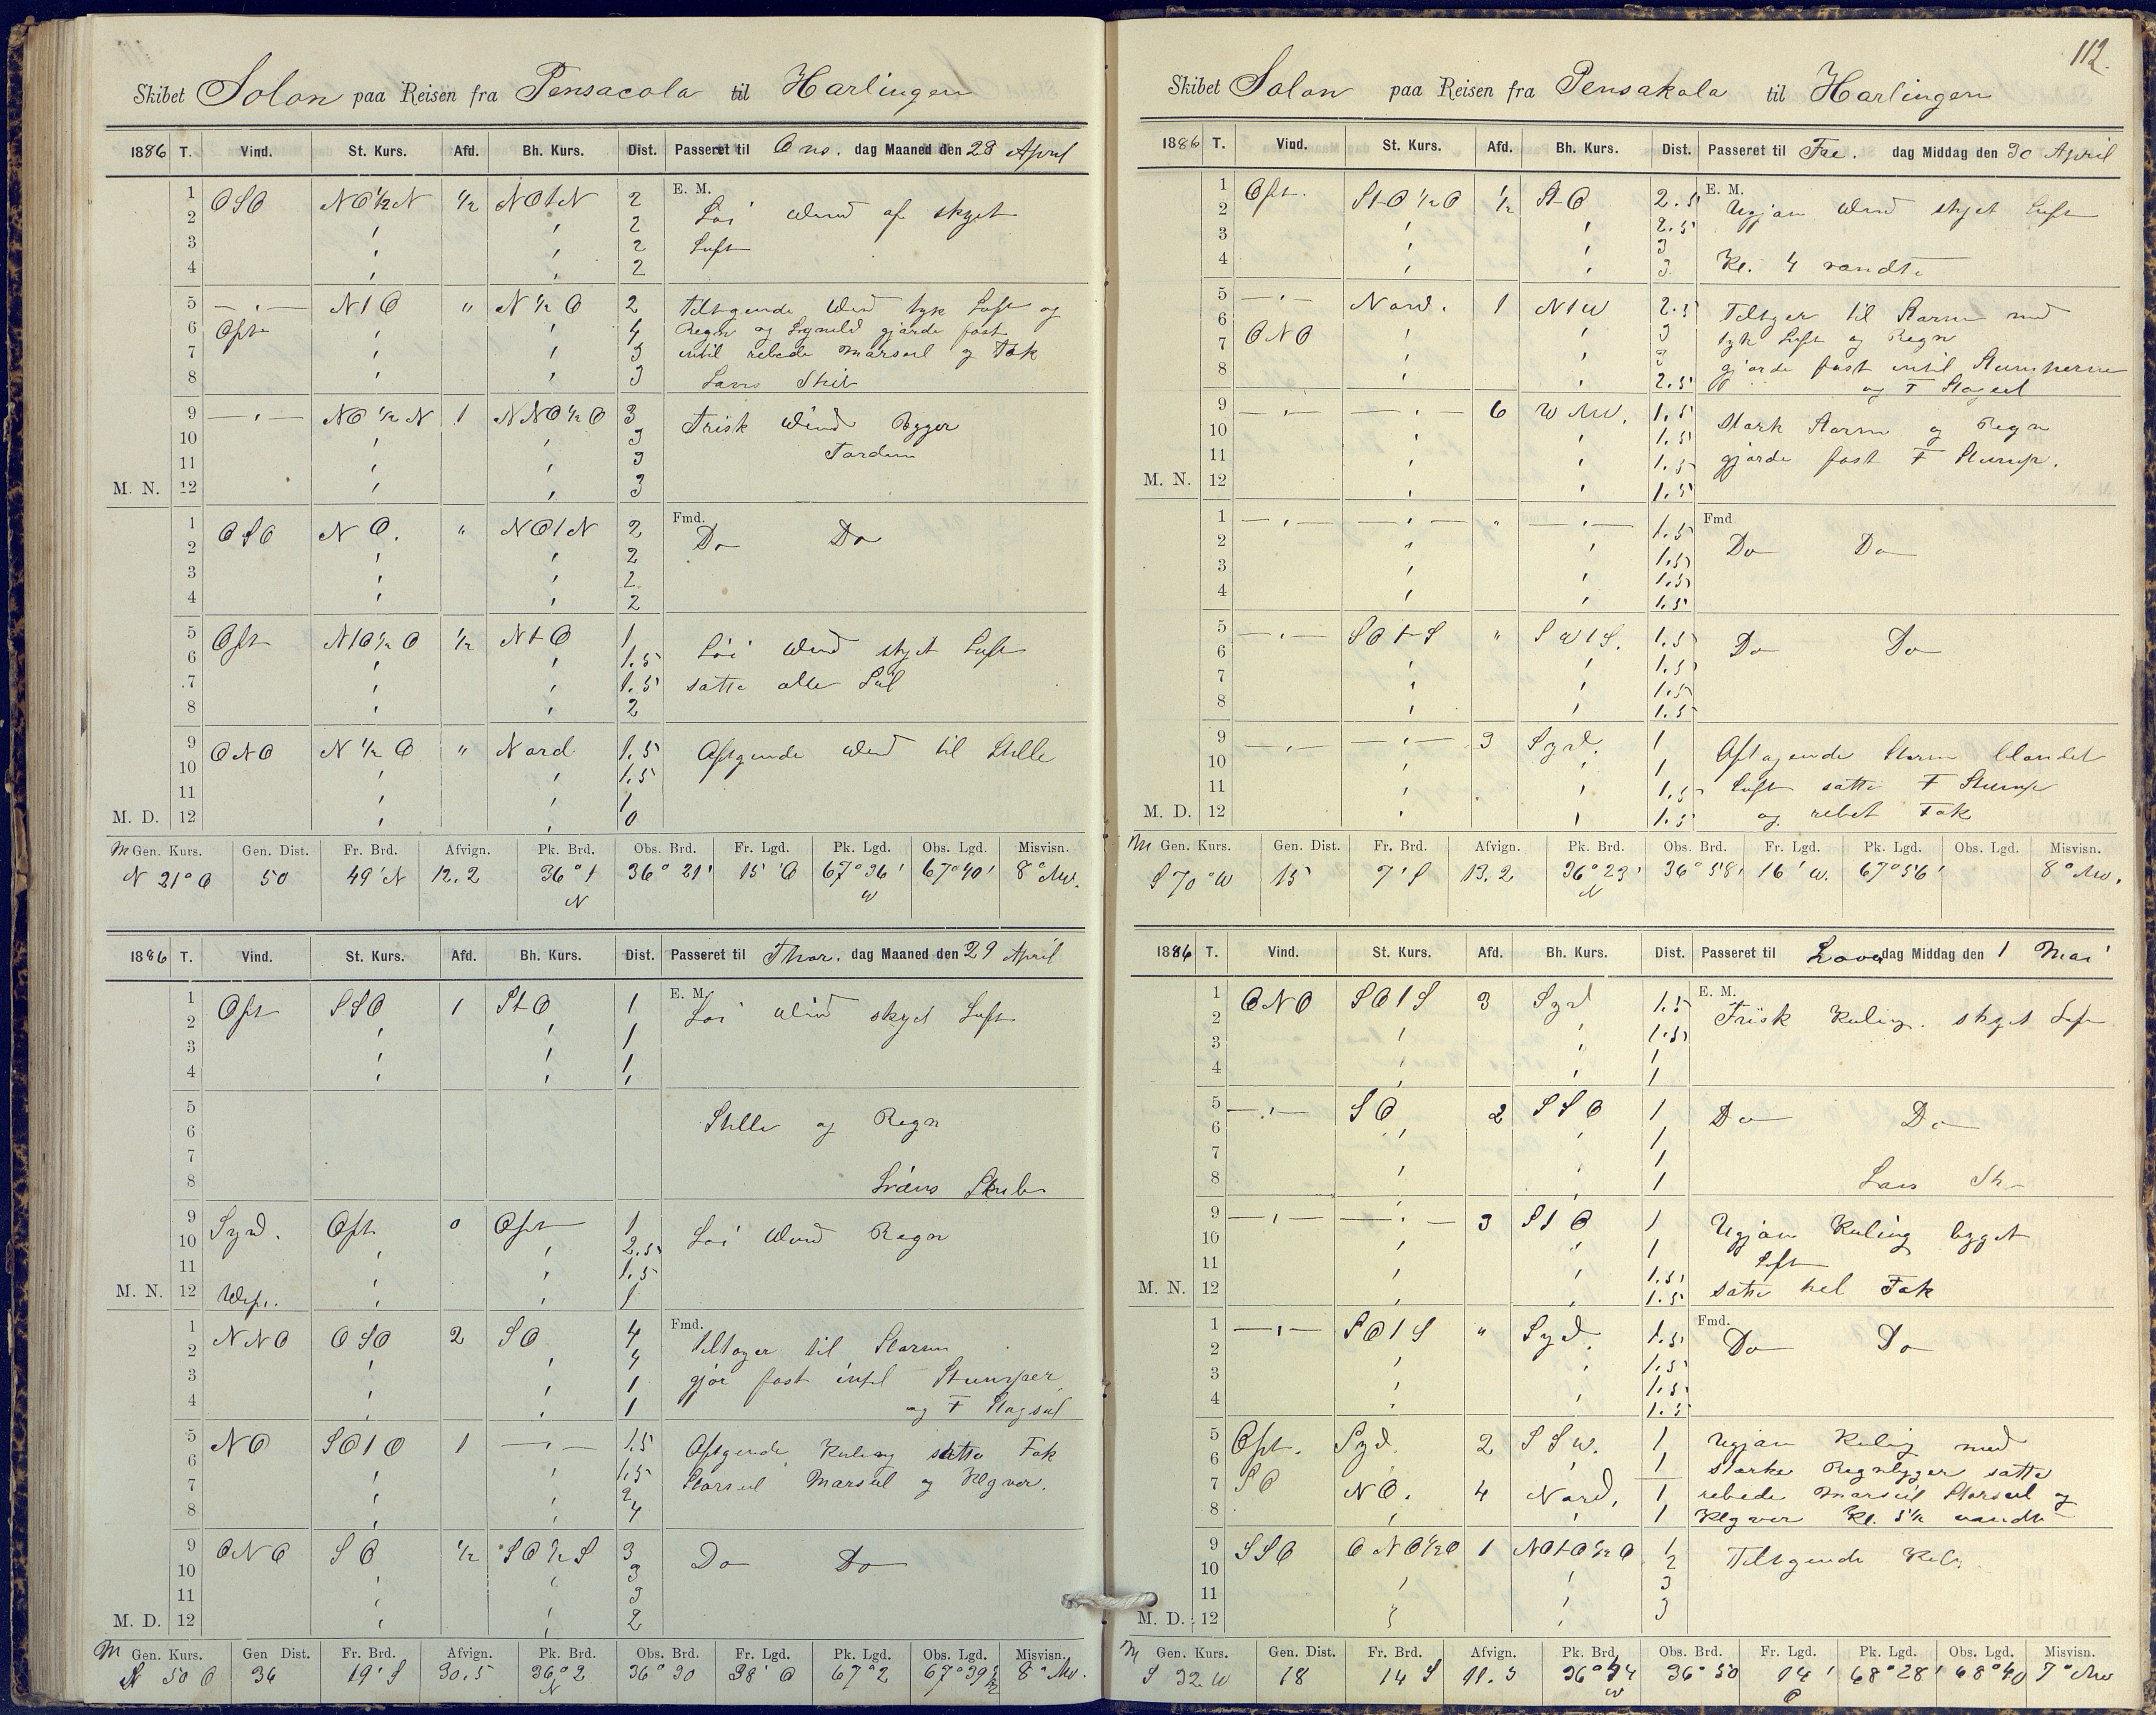 Skibet Solon paa Reisen fra Pensacola til Harlingen
1886 T. Vind. St. Kurs. Afd. Bh. Kurs. Dist. Passeret til Ons. dag Maaned den 28 April
1 OSO NO½N ½ NOtN 2 E. M. Löi Wind af skyet
2 ' ' 2
3 ' ' 2 Luft
4 ' ' 2
5 —"— NtO " N½O 2 Tiltgende Wind tyk Luft og
6 Øst ' ' 4 Regn og Lynild gjorde fast
7 ' ' 3 intil rebede Marseil og Fok
8 ' ' 3 Lans Skib
9 —"— NO½N 1 NNO½O 3 Frisk Wind Byger
10 ' ' 3 Torden
11 ' ' 3
M. N. 12 ' ' 3
1 OSO NO. " NOtN 2 Fmd. Do Do
2 ' ' 2
3 ' ' 2
4 ' ' 2
5 Øst NtO½O ½ NtO 1 Löi Wind skyet Luft
6 ' ' 1.5
7 ' ' 1.5 satte alle Seil
8 ' ' 2
9 ONO N½O " Nord 1.5 Aftgende Wind til Stille
10 ' ' 1.5
11 ' ' 1
M. D. 12 ' ' 0
M Gen. Kurs. Gen. Dist. Fr. Brd. Afvign. Pk. Brd. Obs. Brd. Fr. Lgd. Pk. Lgd. Obs. Lgd. Misvisn.
N 21° O 50 49' N 12.2 36° 1 N 36° 21' 15' O 67° 36' W 67° 40' 8° NW.
1886 T. Vind. St. Kurs. Afd. Bh. Kurs. Dist. Passeret til Thor. dag Maaned den 29 April
1 Øst SSO 1 StO 1 E. M. Löi Wind skyet Luft
2 ' ' 1
3 ' ' 1
4 ' ' 1
5
6 Stille og Regn
7
8 Läns Skib
9 Syd. Øst 0 Øst 1 Löi Wind Regn
10 ' ' 2.5
11 ' ' 1.5
M. N. 12 West. ' ' 1
1 NNO OSO 2 SO 4 Fmd. Tiltager til Storm
2 ' ' 4
3 ' ' 1 gjör fast intil Stumper
4 ' ' 1 og F Stagseil
5 NO SOtO 1 —"— 1.5 Aftgende Kuling satte Fok
6 ' ' 1.5
7 ' ' 2 Storseil Marseil og Klyver.
8 ' ' 4
9 ONO SO ½ SO½S 3 Do Do
10 ' ' 3
11 ' ' 3
M. D. 12 ' ' 2
M Gen. Kurs. Gen Dist. Fr. Brd. Afvign. Pk. Brd. Obs. Brd. Fr. Lgd. Pk. Lgd. Obs. Lgd. Misvisn.
50 O 36 19' S 30.5 36° 2 N 36° 30 38' O 67° 2 67° 39½ 8° NW.
112.
Skibet Solon paa Reisen fra Pensakola til Harlingen
1886 T. Vind. St. Kurs. Afd. Bh. Kurs. Dist. Passeret til Fre. dag Middag den 30 April
1 Øst. StO½O ½ StO 2.5 E. M. Ugjän Wind skyet Luft
2 ' ' 2.5
3 ' ' 3
4 ' ' 3 Kl. 4 vandte
5 —"— Nord. 1 NtW 2.5 Tiltger til Storm med
6 ONO ' ' 3 tyk Luft og Regn
7 ' ' 3 gjorde fast intil Stumperne
8 ' ' 2.5 og F Stagseil
9 —"— —"— 6 WNW. 1.5 Stark Storm og Regn
10 ' ' 1.5
11 ' ' 1.5 gjorde fast F Stump.
M. N. 12 ' ' 1.5
1 —"— —"— " —"— 1.5 Fmd. Do Do
2 ' ' 1.5
3 ' ' 1.5
4 ' ' 1.5
5 —"— SOtS " SWtS. 1.5 Do Do
6 ' ' 1.5
7 ' ' 1.5
8 ' ' 1.5
9 —"— —"— 3 Syd. 1 Aftagende Storm blandet
10 ' ' 1
11 ' ' 1.5 Luft satte F Stump
M. D. 12 ' ' 1.5 og rebet Fok
M Gen. Kurs. Gen. Dist. Fr. Brd. Afvign. Pk. Brd. Obs. Brd. Fr. Lgd. Pk. Lgd. Obs. Lgd. Misvisn.
S 70° W 15 7' S 13.2 36° 23' N 36° 58' 16' W. 67° 56' 8° NW.
1886 T. Vind. St. Kurs. Afd. Bh. Kurs. Dist. Passeret til Löver dag Middag den 1 Mai
1 ONO SOtS 3 Syd 1.5 E. M. Frisk Kuling. skyet Luft
2 ' ' 1.5
3 ' ' 1
4 ' ' 1
5 —"— SO 2 SSO 1 Do Do
6 ' ' 1
7 ' ' 1
8 ' ' 1 Lans Sk
9 —"— —"— 3 StO 1 Ugjän Kuling byget
10 ' ' 1 Luft
11 ' ' 1.5
M. N. 12 ' ' 1.5 satte hel Fok
1 —"— SOtS " Syd. 1.5 Fmd. Do Do
2 ' ' 1.5
3 ' ' 1.5
4 ' ' 1.5
5 Øst. Syd. 2 SSW. 1 Ugjän Kuling med
6 ' ' 1 starke Regnbyger satte
7 SO NO. 4 Nord. 1 rebede Marseil Storseil og
8 ' ' 1 Klyver Kl. 5½ vandte
9 SSO ONO½O 1 NOtO½O 1 Tiltgende Kul.
10 ' ' 2
11 ' ' 3
M. D. 12 ' ' 3
M Gen. Kurs. Gen. Dist. Fr. Brd. Afvign. Pk. Brd. Obs. Brd. Fr. Lgd. Pk. Lgd. Obs. Lgd. Misvisn.
S 32 W 18 14 S 11.3 36° 44 36° 50 14' O 68° 28' 68° 40 7° NW